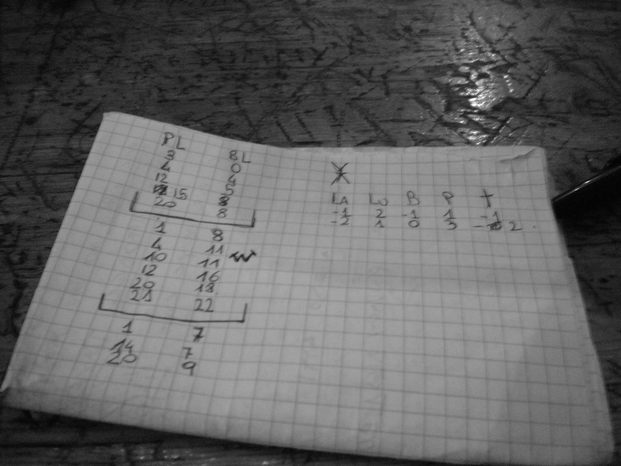 PL BL
3 0
4 4
12 5
15 8
20 8
1 8
4 11
10 11 W
12 16
20 18
21 22
1 7
14 7
20 9
X
LA LU B P T
-1 2 -1 1 -1
-2 1 0 3 -2